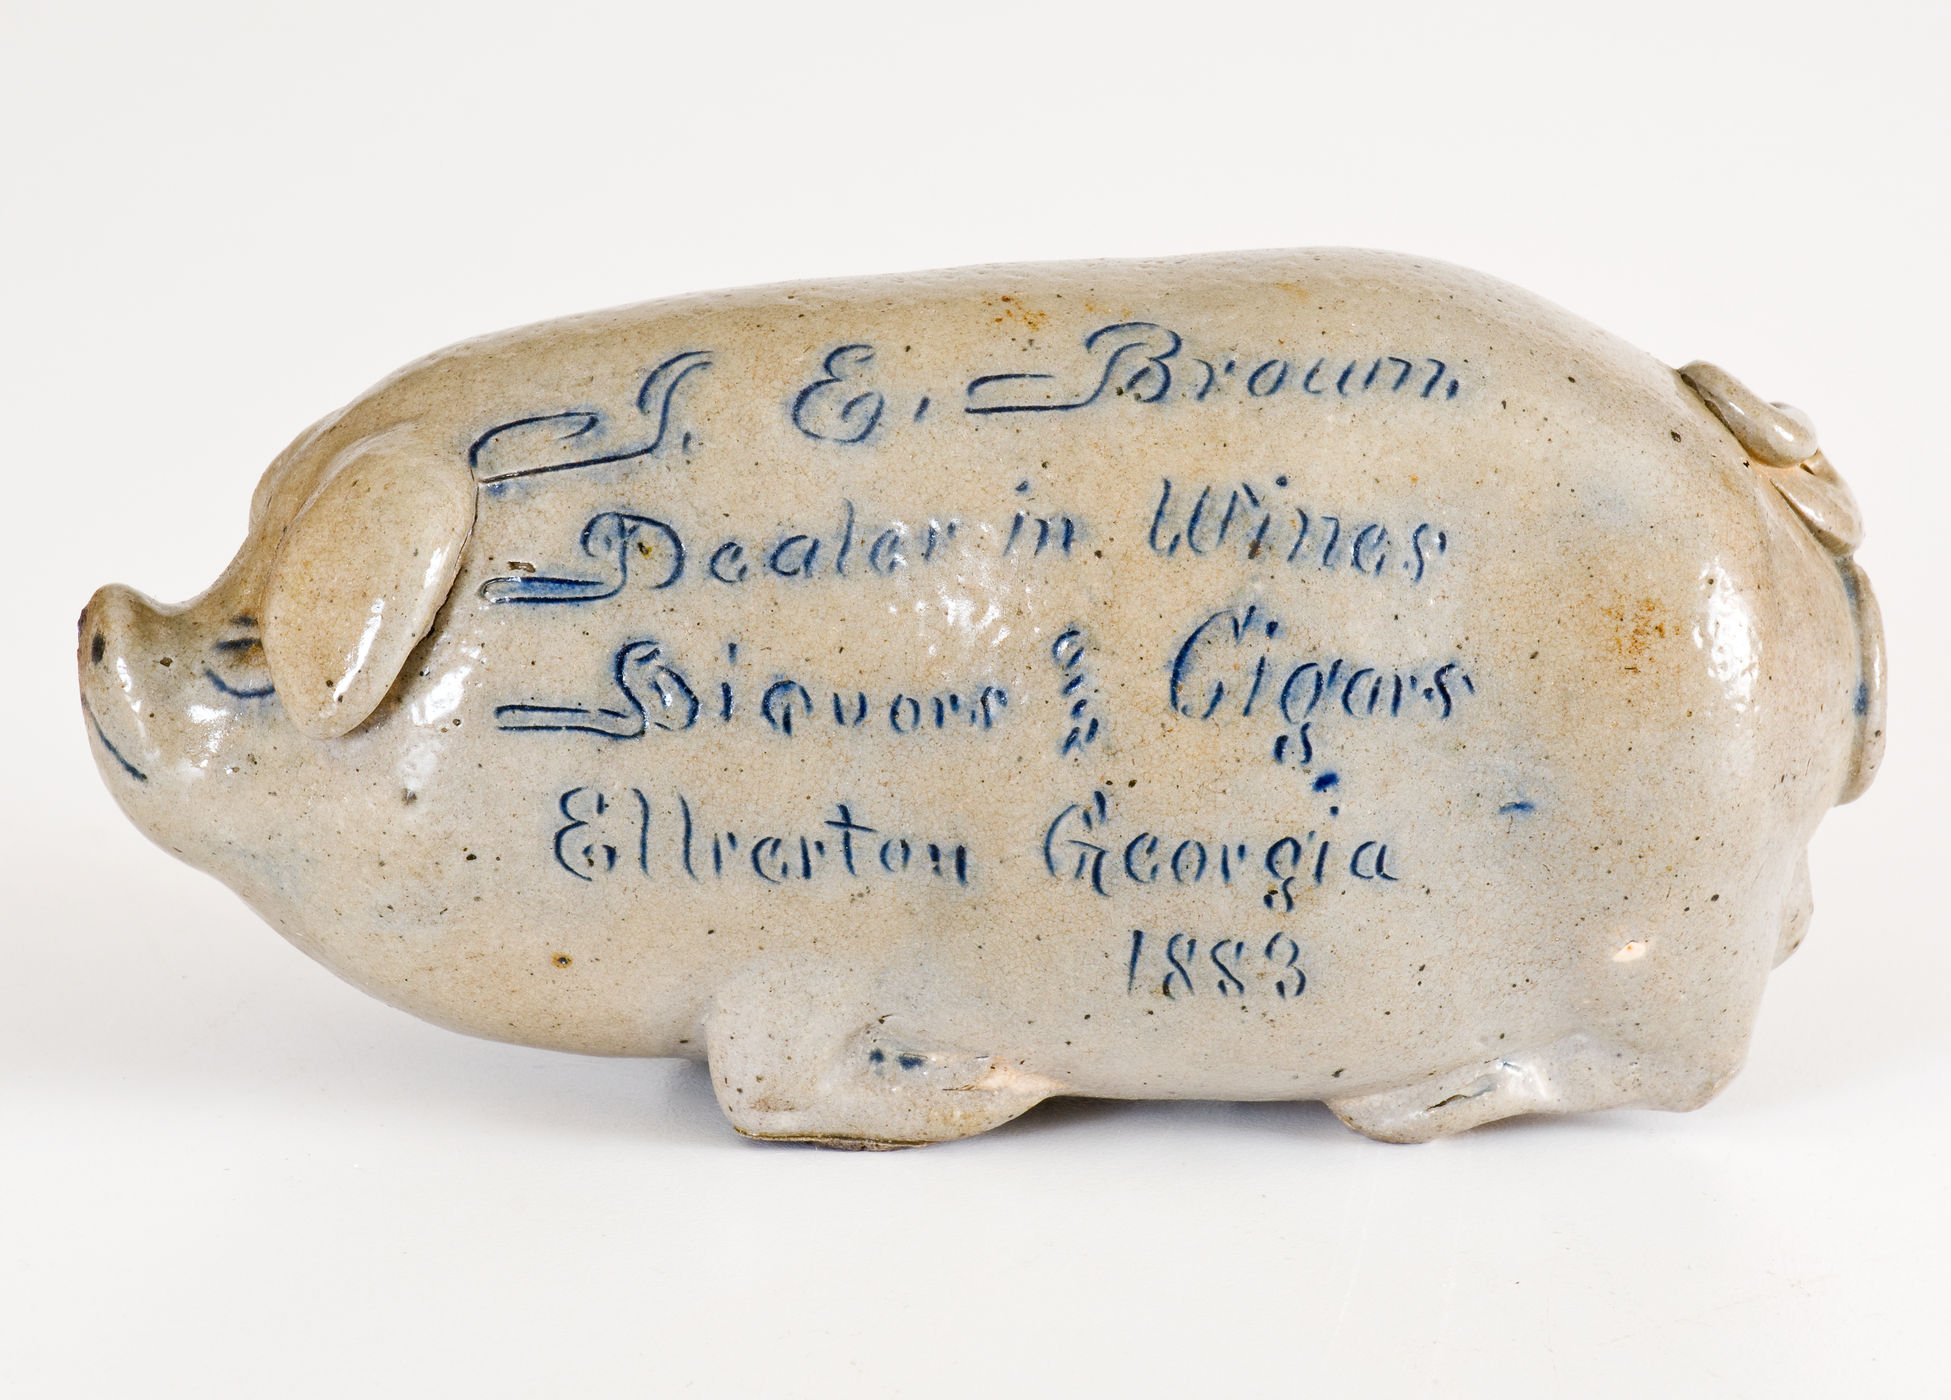 J. E. Brown.
Dealer in Wines
Liquors & Cigars
Ellverton Georgia
1883